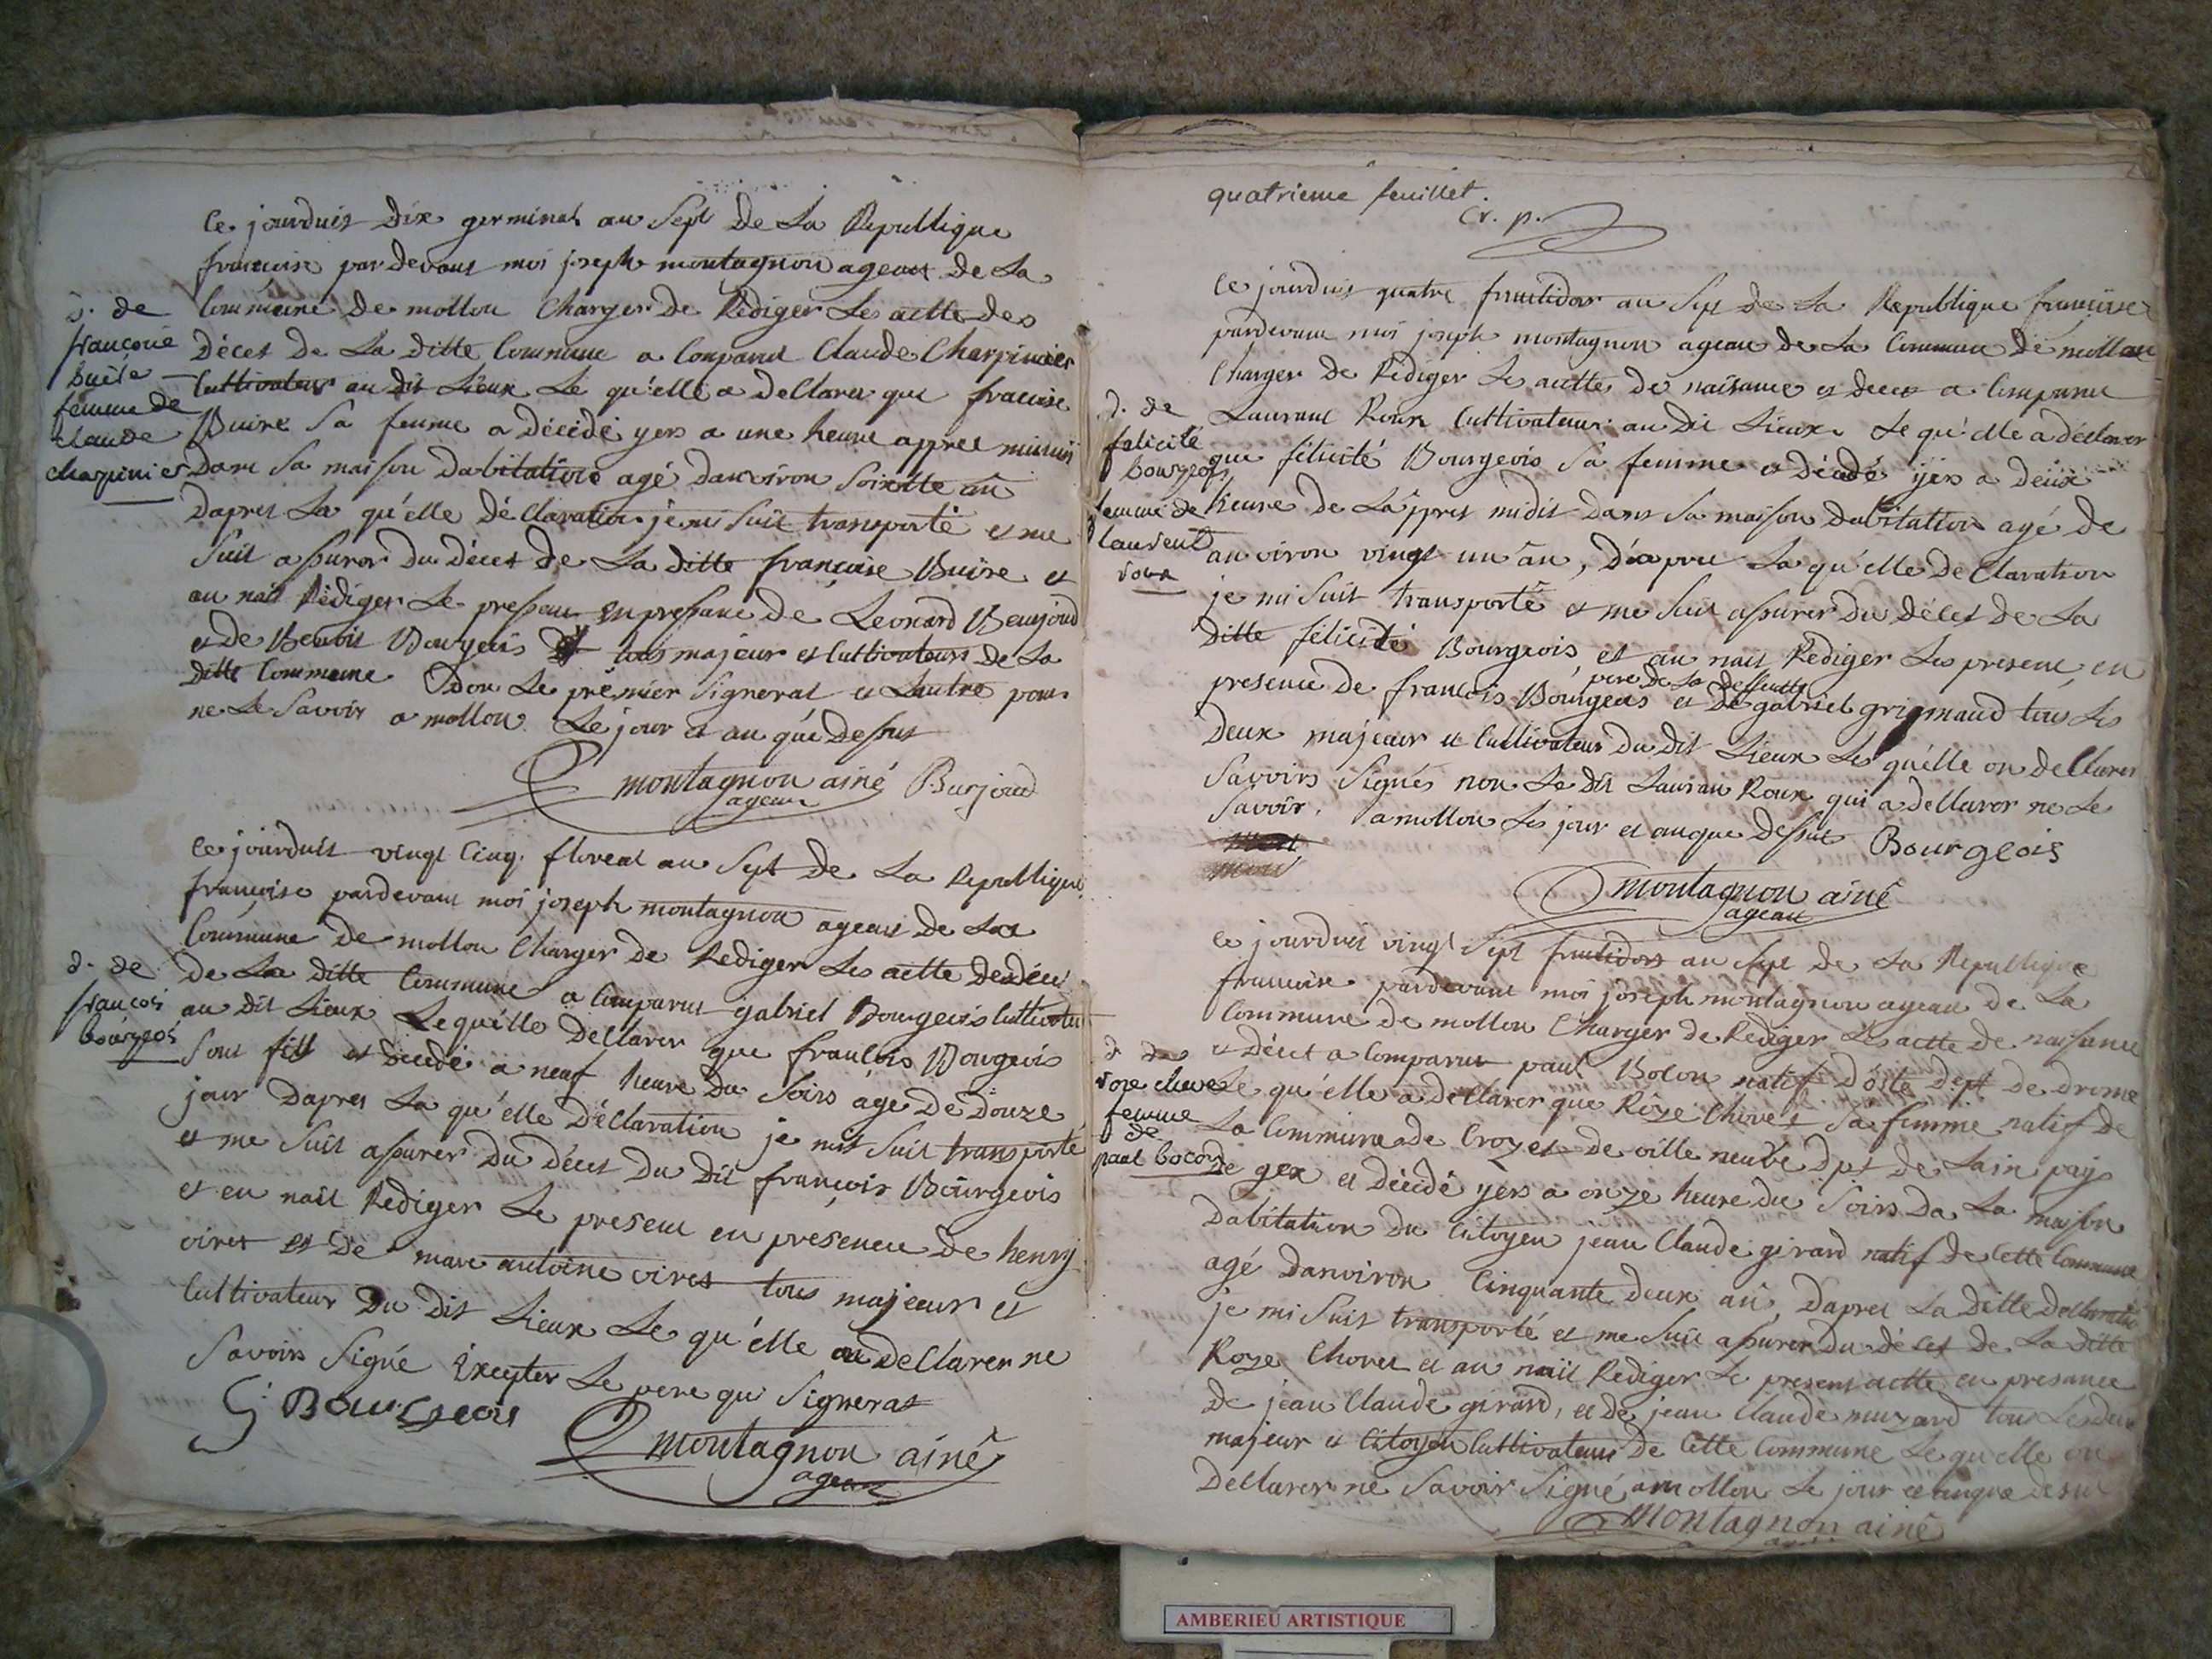 Ce jourduit dix germinal an Sept de La Republique
francoise pardevant moi joseph montagnon agent de La
Commune de mollon Charger de Rediger Les actte des
Décet de La ditte Commune a Comparut Claude Charpinier
Cultivateur au dit Lieux Le qu'elle a dellarer que francoise
Buire Sa femme a décédé yers a une heure appres minuit
Dans Sa maison dabitations agé danviron Soixatte an
Dapres La qu'elle déClaration je mi suit transporté et me
Suit assurer du décet de La ditte francoise Buire et
an nait Rédiger Le pressan en pressance de Leonard Beurjoud
et de Benoit Bourgeois tous majeur et Cultivateurs de La
ditte Commune don Le premier Signerat et Lautre pour
ne Le Savoir a mollon Le jour et an que dessus
montagnon ainé Burjoud
agent
d. de
francoise
buire
femme de
claude
charpinier
Ce jourduit vingt Cinq floreal an Sept de La Republique
francoise pardevant moi joseph montagnon agent de La
Commune de mollon Charger de Rediger Les actte des déce
de La ditte Commune a Comparut gabriel Bourgeois Cultivateu
au dit Lieux Lequ'elle dellarer que francois Bourgeois
Son fils et décédé a neuf heure du Soirs age de douze
jour dapres La qu'elle déClaration je mit Suit transporté
et me Suit assurer du décet du dit francois Bourgeois
et en nait Rediger Le present en présence de henry
viret et de marc antoine viret tous majeur et
Cultivateur du dit Lieux Le qu'elle on deClarer ne
Savoirs Signé Excepter Le pere qui Signerat
G. Bourgeois
montagnon ainé
agent
d. de
francois
bourgeois
quatrieme feuillet.
Cr. p.
Ce jourduit quatre fructidor an Sept de La Republique francoise
pardevant moi joseph montagnon agent de La Commune de mollon
Charger de Rédiger Les actte de naisance et décet a Comparut
Laurant Roux Cultivateur au dit Lieux Le qu'elle a déClarer
que félicité Bourgeois Sa femme a décédé yers a deux
heure de Lappres midit dans Sa maison dabitation agé de
an viron vingt un an, dapres La qu'elle deClaration
je mi Suit transporté et me Suit assurer du décet de La
ditte félicité Bourgeois et an nait Rediger Les present en
pere de La deffunte
presence de francois Bourgeois et de gabriel grignaud tous Les
deux majeur et Cultivateur du dit Lieux Les qu'elle on deClarer
Savoirs Signés non Le dit Lauran Roux qui a deClarer ne Le
Savoir, a mollon Les jour et an que dessus Bourgeois
montagnon ainé
agent
d. de
felicité
bourgeois
femme de
laurent
roux
Ce jourduit vingt Sept fructidors an Sept de La Republique
francoise pardevant moi joseph montagnon agent de La
Commune de mollon Charger de Rediger Les actte de naisance
et décet a Comparut paul Bocon natif d'oste dept de drome
Le qu'elle a deClarer que Roze Chovet Sa femme natif de
La Commune de Crozet de ville neuve dpt de Lain pays
de gex et décédé yers a onze heure du Soirs da La maison
dabitation du Citoyen jean Claude girard natif de Cette Commune
agé danviron Cinquante deux an, dapres La ditte declaratio
je mi Suit transporté et me Suit assurer du décet de La ditte
Roze Chovet et an nait Rediger Le present actte en presance
de jean Claude girard, et de jean Claude muzard tous Les deux
majeur et Citoyen Cultivateurs de Cette Commune Le qu'elle on
DeClarer ne Savoir Signé a mollon Le jour et an que desu
Montagnon ainé
d. de
roze chovet
femme
de
paul bocon
AMBERIEU ARTISTIQUE